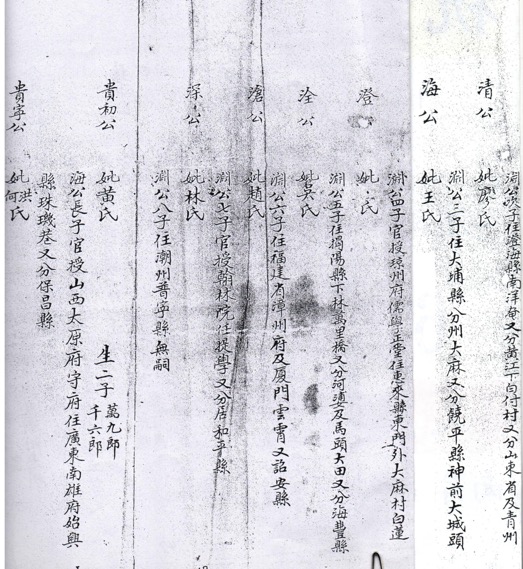 清公
妣廖氏
淵公次子住澄海縣南洋
又分山東省及青州
海公
妣王氏
淵公三子住大埔縣分州大麻又分饒平縣神前大城頭
澄公
妣氏
淵公四子官授
州府儒學正堂住惠來縣東門外大麻村白蓮
洤公
妣吳氏
淵公五子住揭陽縣下林萬里橋又分河婆及馬頭大田又分海豐縣
滄公
妣趙氏
淵公六子住福建省漳州府及厦門雲霄又詔安縣
深公
妣林氏
淵公七子官授翰林院任提學又分居和平縣
淵公八子住潮州普寧縣無嗣
貴初公
妣黃氏
生二子萬九郎
千六郎
海公長子官授山西太原府守府住廣東南雄府始興
縣珠璣巷又分保昌縣
貴寧公
妣洪何氏